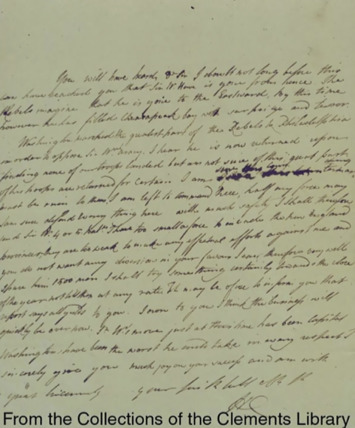 You will have heard, & I doubt not long before this
can have reached you that Sir W. Howe is gone from hence. The
Rebels imagine that he is gone to the Eastward. By this time
however he has filled Chesapeak bay with surprize and terror.
Washington marched the greatest part of the Rebels to Philadelphia
in order to oppose Sir Wm's army. I hear he is now returned upon
finding none of our troops landed but am not sure of this, great part
of his troops are returned for certain. I am sure this
must be ruin to them. I am left to command here, half my force may
I am sure defend every thing here with much safety. I shall therefore
send Sir W 4 or 5 Batns. I have too small a force to invade the New England
provinces, they are too weak to make any effectual efforts against me and
you do not want any diversion in your favour. I can, therefore very well
spare him 1500 men. I shall try something certainly towards the close
of the year, not till then at any rate. It may be of use to inform you that
report says all yields to you. I own to you I think the business will
quickly be over now. Sr. W's move just at this time has been capital
Washington's have been the worst he could take in every respect. I
sincerely give you much joy on your success and am with
great Sincerity your
HC
From the Collections of the Clements Library